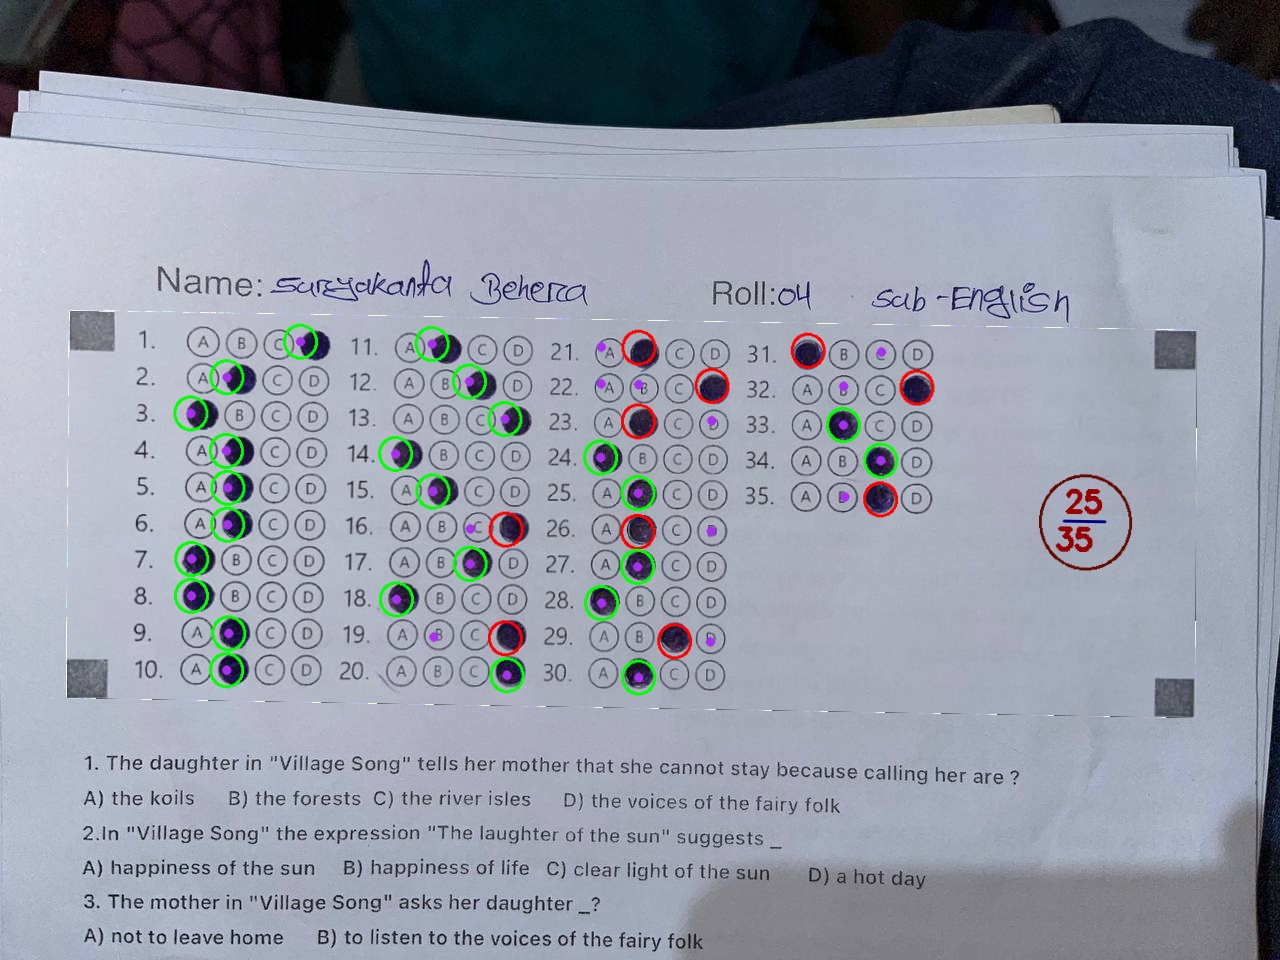 Name: Suryakanta Behera Roll: 04 Sub-English
1. A B C 11. A C D 21. A C D 31. B D
2. A C D 12. A B D 22. A B C 32. A B C
3. B C D 13. A B C 23. A C D 33. A C D
4. A C D 14. B C D 24. B C D 34. A B D
5. A C D 15. A C D 25. A C D 35. A B D
6. A C D 16. A B C 26. A C D
7. B C D 17. A B D 27. A C D
8. B C D 18. B C D 28. B C D
9. A C D 19. A B C 29. A B D
10. A C D 20. A B C 30. A C D
25
35
1. The daughter in "Village Song" tells her mother that she cannot stay because calling her are ?
A) the koils B) the forests C) the river isles D) the voices of the fairy folk
2.In "Village Song" the expression "The laughter of the sun" suggests _
A) happiness of the sun B) happiness of life C) clear light of the sun D) a hot day
3. The mother in "Village Song" asks her daughter _?
A) not to leave home B) to listen to the voices of the fairy folk